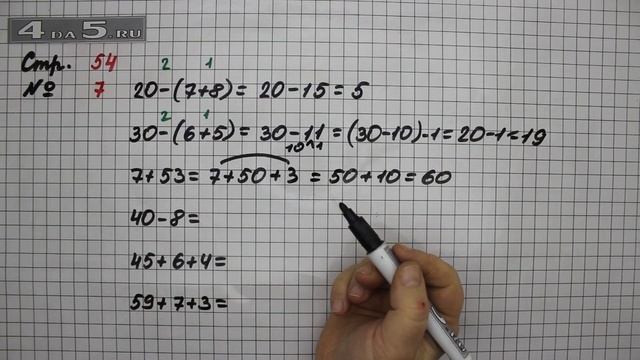 4DA5.RU
Стр. 54 2 1
№ 7 20-(7+8)= 20-15=5
2 1
30-(6+5)= 30-11=(30-10)-1=20-1=19
10 1
7+53= 7+50+3 =50+10=60
40-8=
45+6+4=
59+7+3=